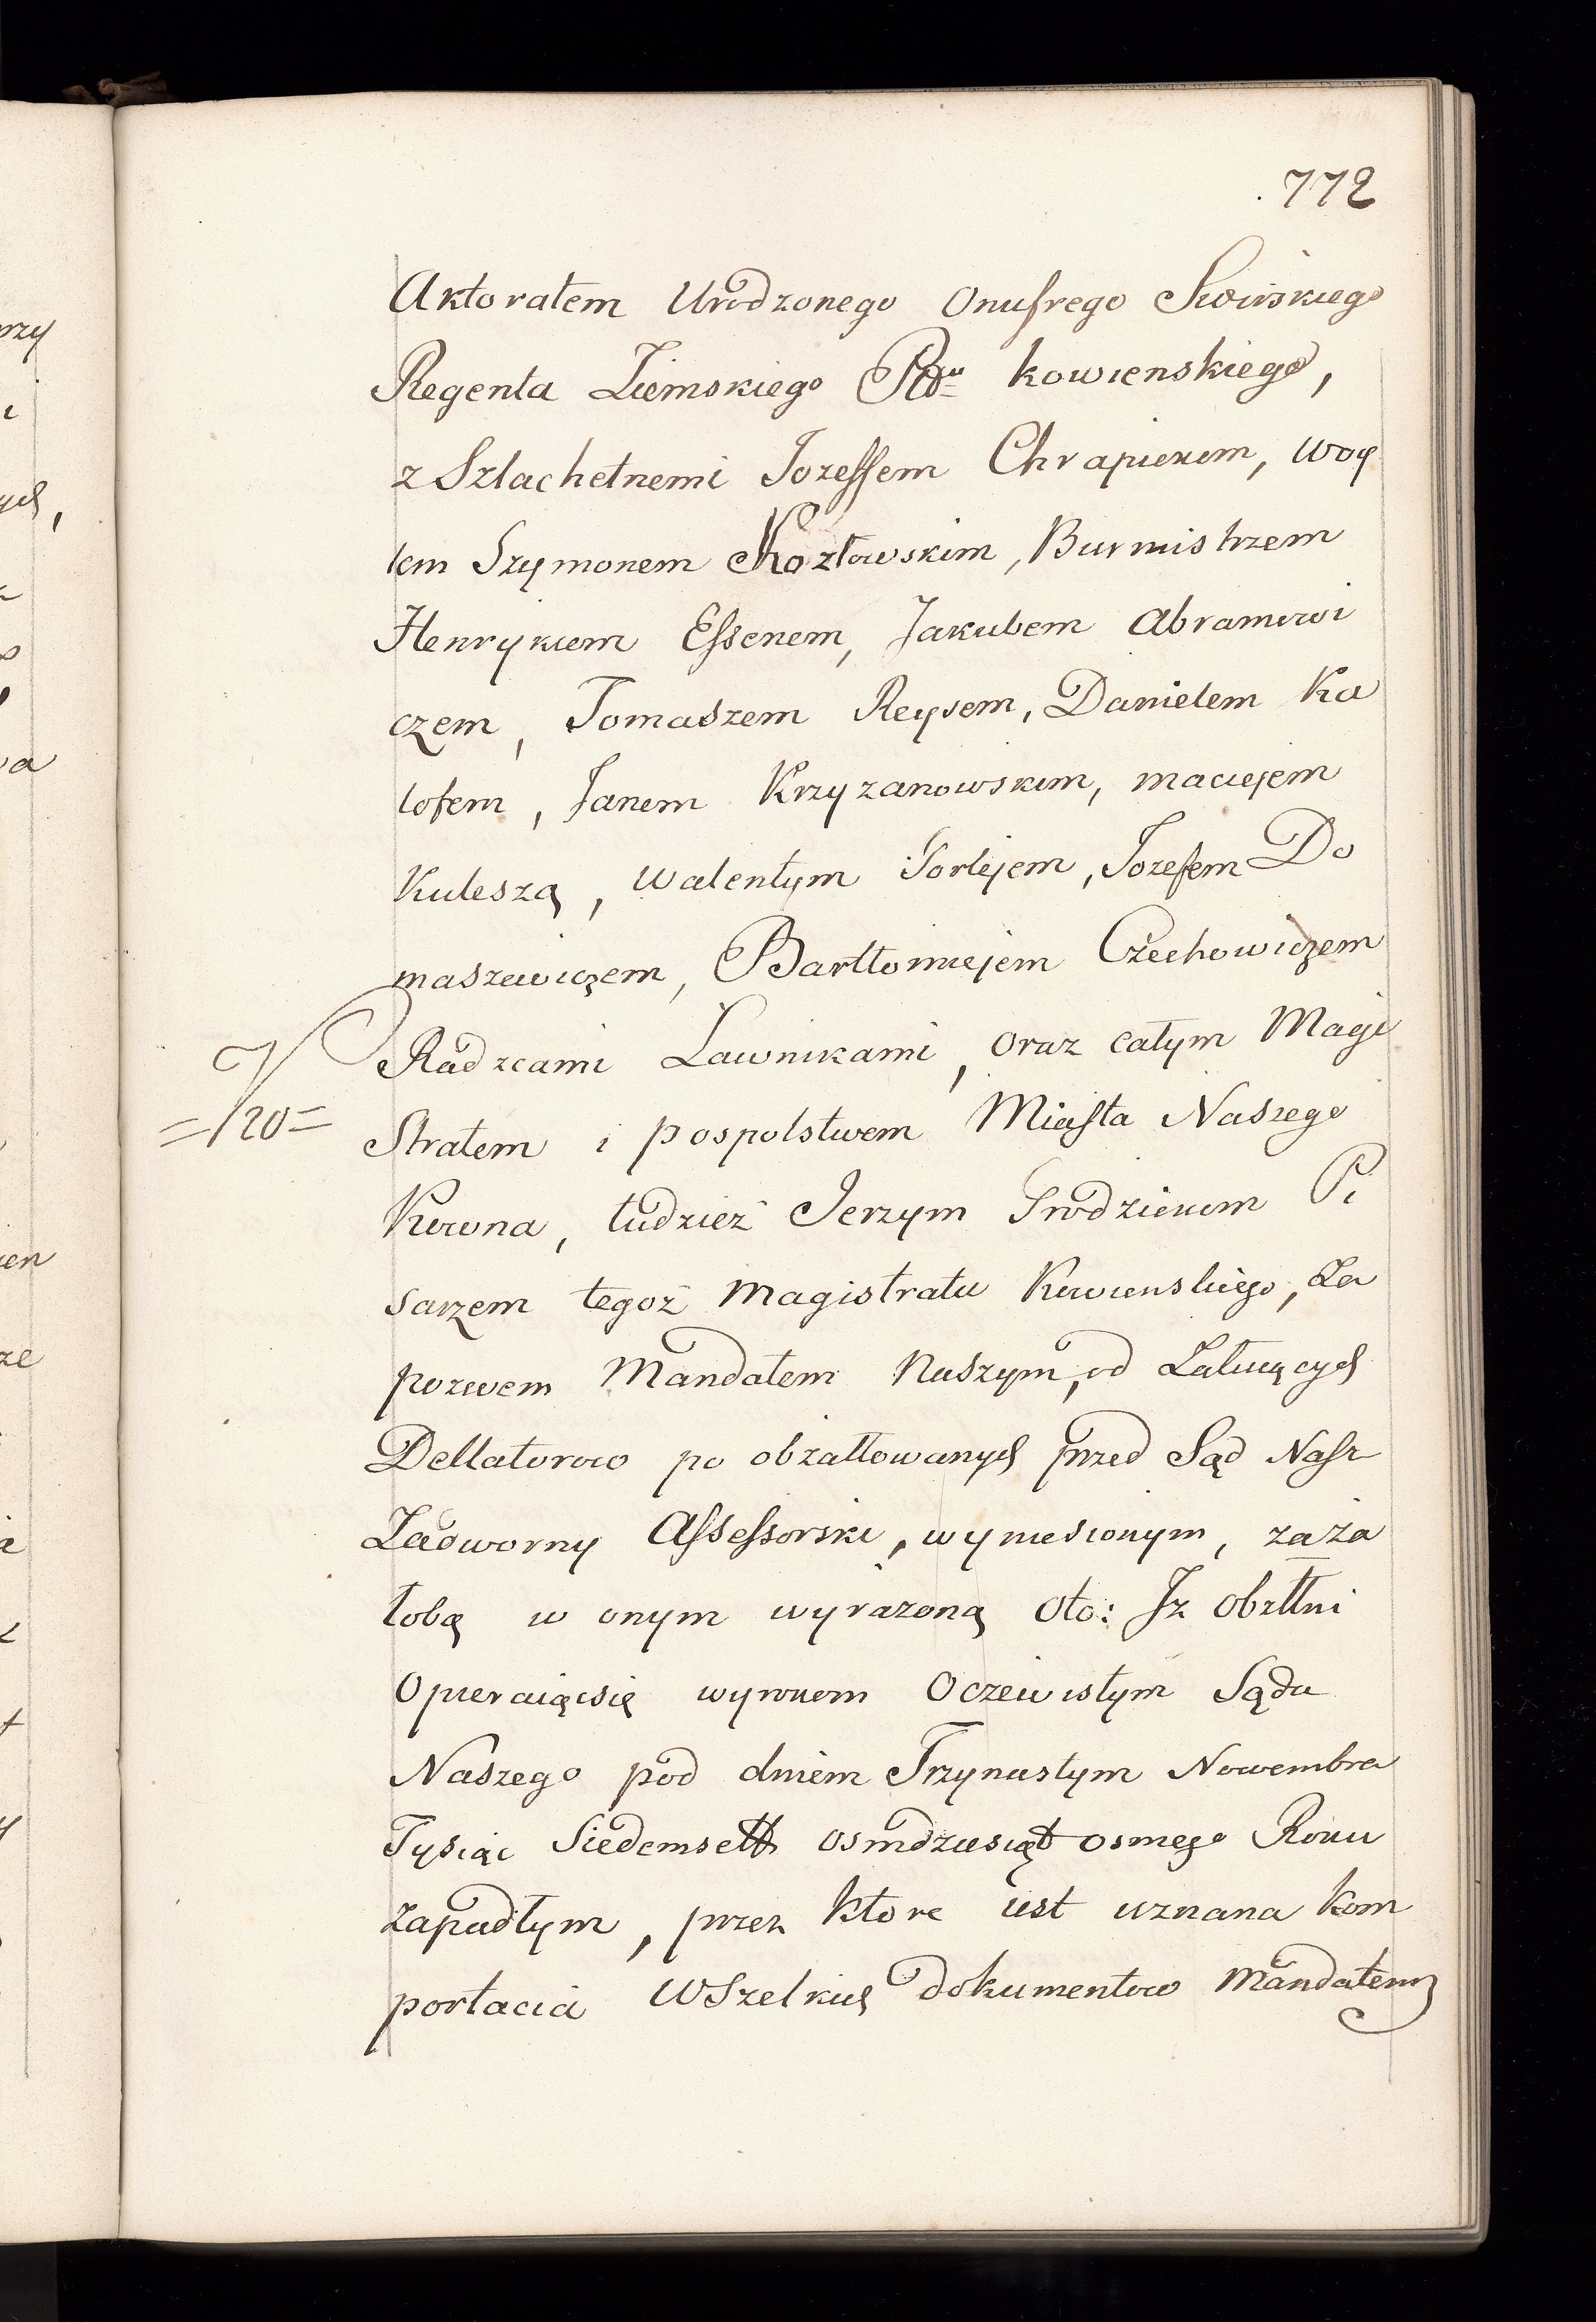 772
Aktoratem Urodzonego Onufrego Swirskiego
Regenta Ziemskiego Ptu Kowienskiego,
z Szlachetnemi Jozeffem Chrapickim, woy
tem Szymonem Kozłowskim, Burmistrzem
Henrykiem Essenem, Jakubem Abramowi
czem, Tomaszem Reysem, Danielem Ka
lofem, Janem Krzyzanowskim, maciejem
Kuleszą, Walentym Gorlejem, Jozefem Do
maszewiczem, Bartłomiejem Czechowiczem
Radzcami Ławnikami, oraz całym Magi
Stratem i pospolstwem Miasta Naszego
Kowna, tudzież Jerzym Grodzickim Pi
sarzem tegoż Magistratu Kowienskiego, Za
pozwem Mandatem Naszym, od Żałuiących
Dellatorow po obżałłowanych przed Sąd Nasz
Zadworny Assessorski, wyniesionym, za ża
łobą w onym wyrażoną oto: Iż obżłłni
Opieraiącsię wyrokiem Oczewistym Sądu
Naszego pod dniem Trzynastym Nowembra
Tysiąc Siedemset osmdziesiąt osmego Roku
zapadłym, przez ktore iest uznana kom
portacia wszelkich dokumentow Mandatem
=120=